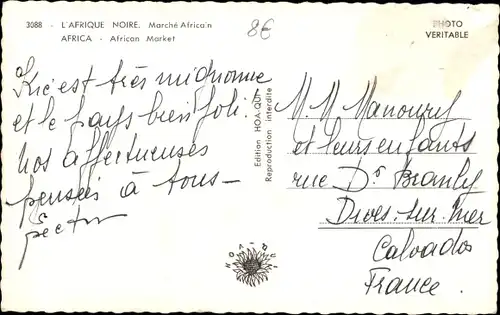 3088 - L'AFRIQUE NOIRE. Marché Africain
AFRICA - African Market
8€
PHOTO
VERITABLE
est très mignonne
et le pays bien joli.
Nos affectueuses
pensées à tous -
Edition HOA-QUI
Reproduction interdite
HOA-QUI
M. M. Manoury
et leurs enfants
rue Dr Branly
Dives-sur-Mer
Calvados
France.